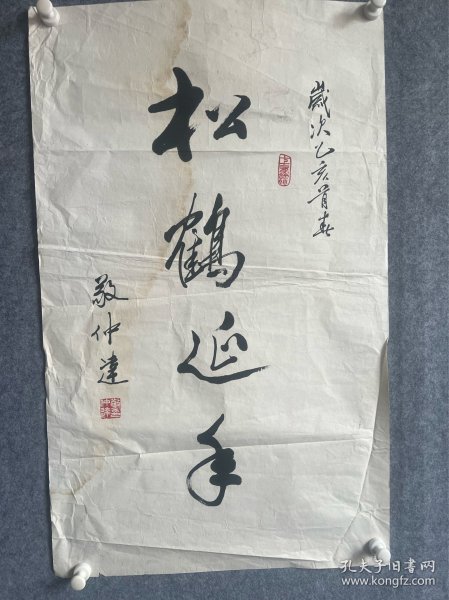 歲次乙亥首春
松鶴延年
敬仲達
孔夫子旧书网
www.kongfz.com